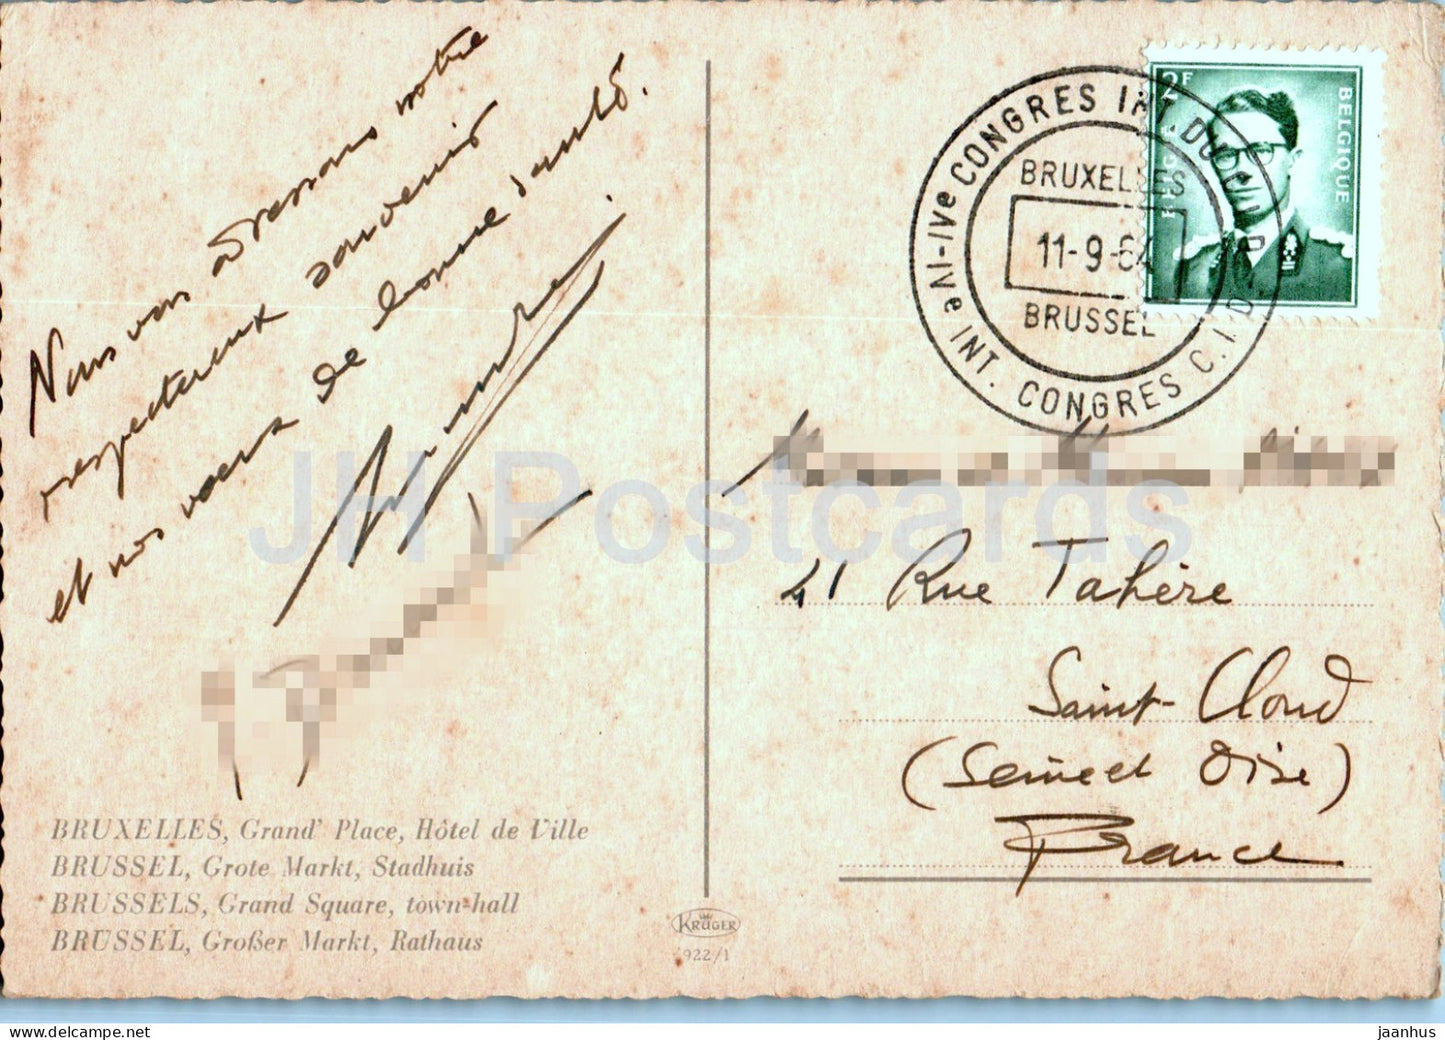 Nous vous adressons notre
respectueux souvenir
et nos vœux de bonne santé.
BRUXELLES, Grand' Place, Hôtel de Ville
BRUSSEL, Grote Markt, Stadhuis
BRUSSELS, Grand Square, town-hall
BRUSSEL, Großer Markt, Rathaus
KRÜGER
922/1
2F
BELGIQUE
IVe CONGRES INT DU
BRUXELLES
11-9-64
BRUSSEL
IVe INT. CONGRES C.I.D
41 Rue Tahère
Saint-Cloud
(Seine et Oise)
France
JH Postcards
www.delcampe.net
jaanhus